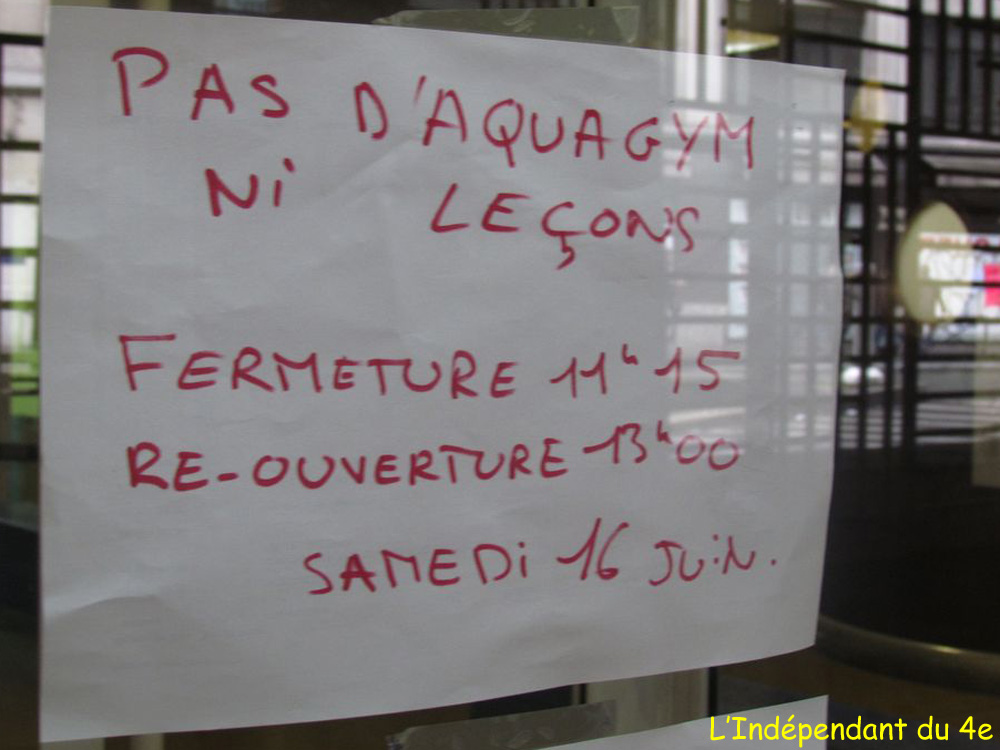 PAS D'AQUAGYM
Ni LEÇONS
FERMETURE 11h15
RE-OUVERTURE 13h00
SAMEDi 16 JUiN.
L'Indépendant du 4e